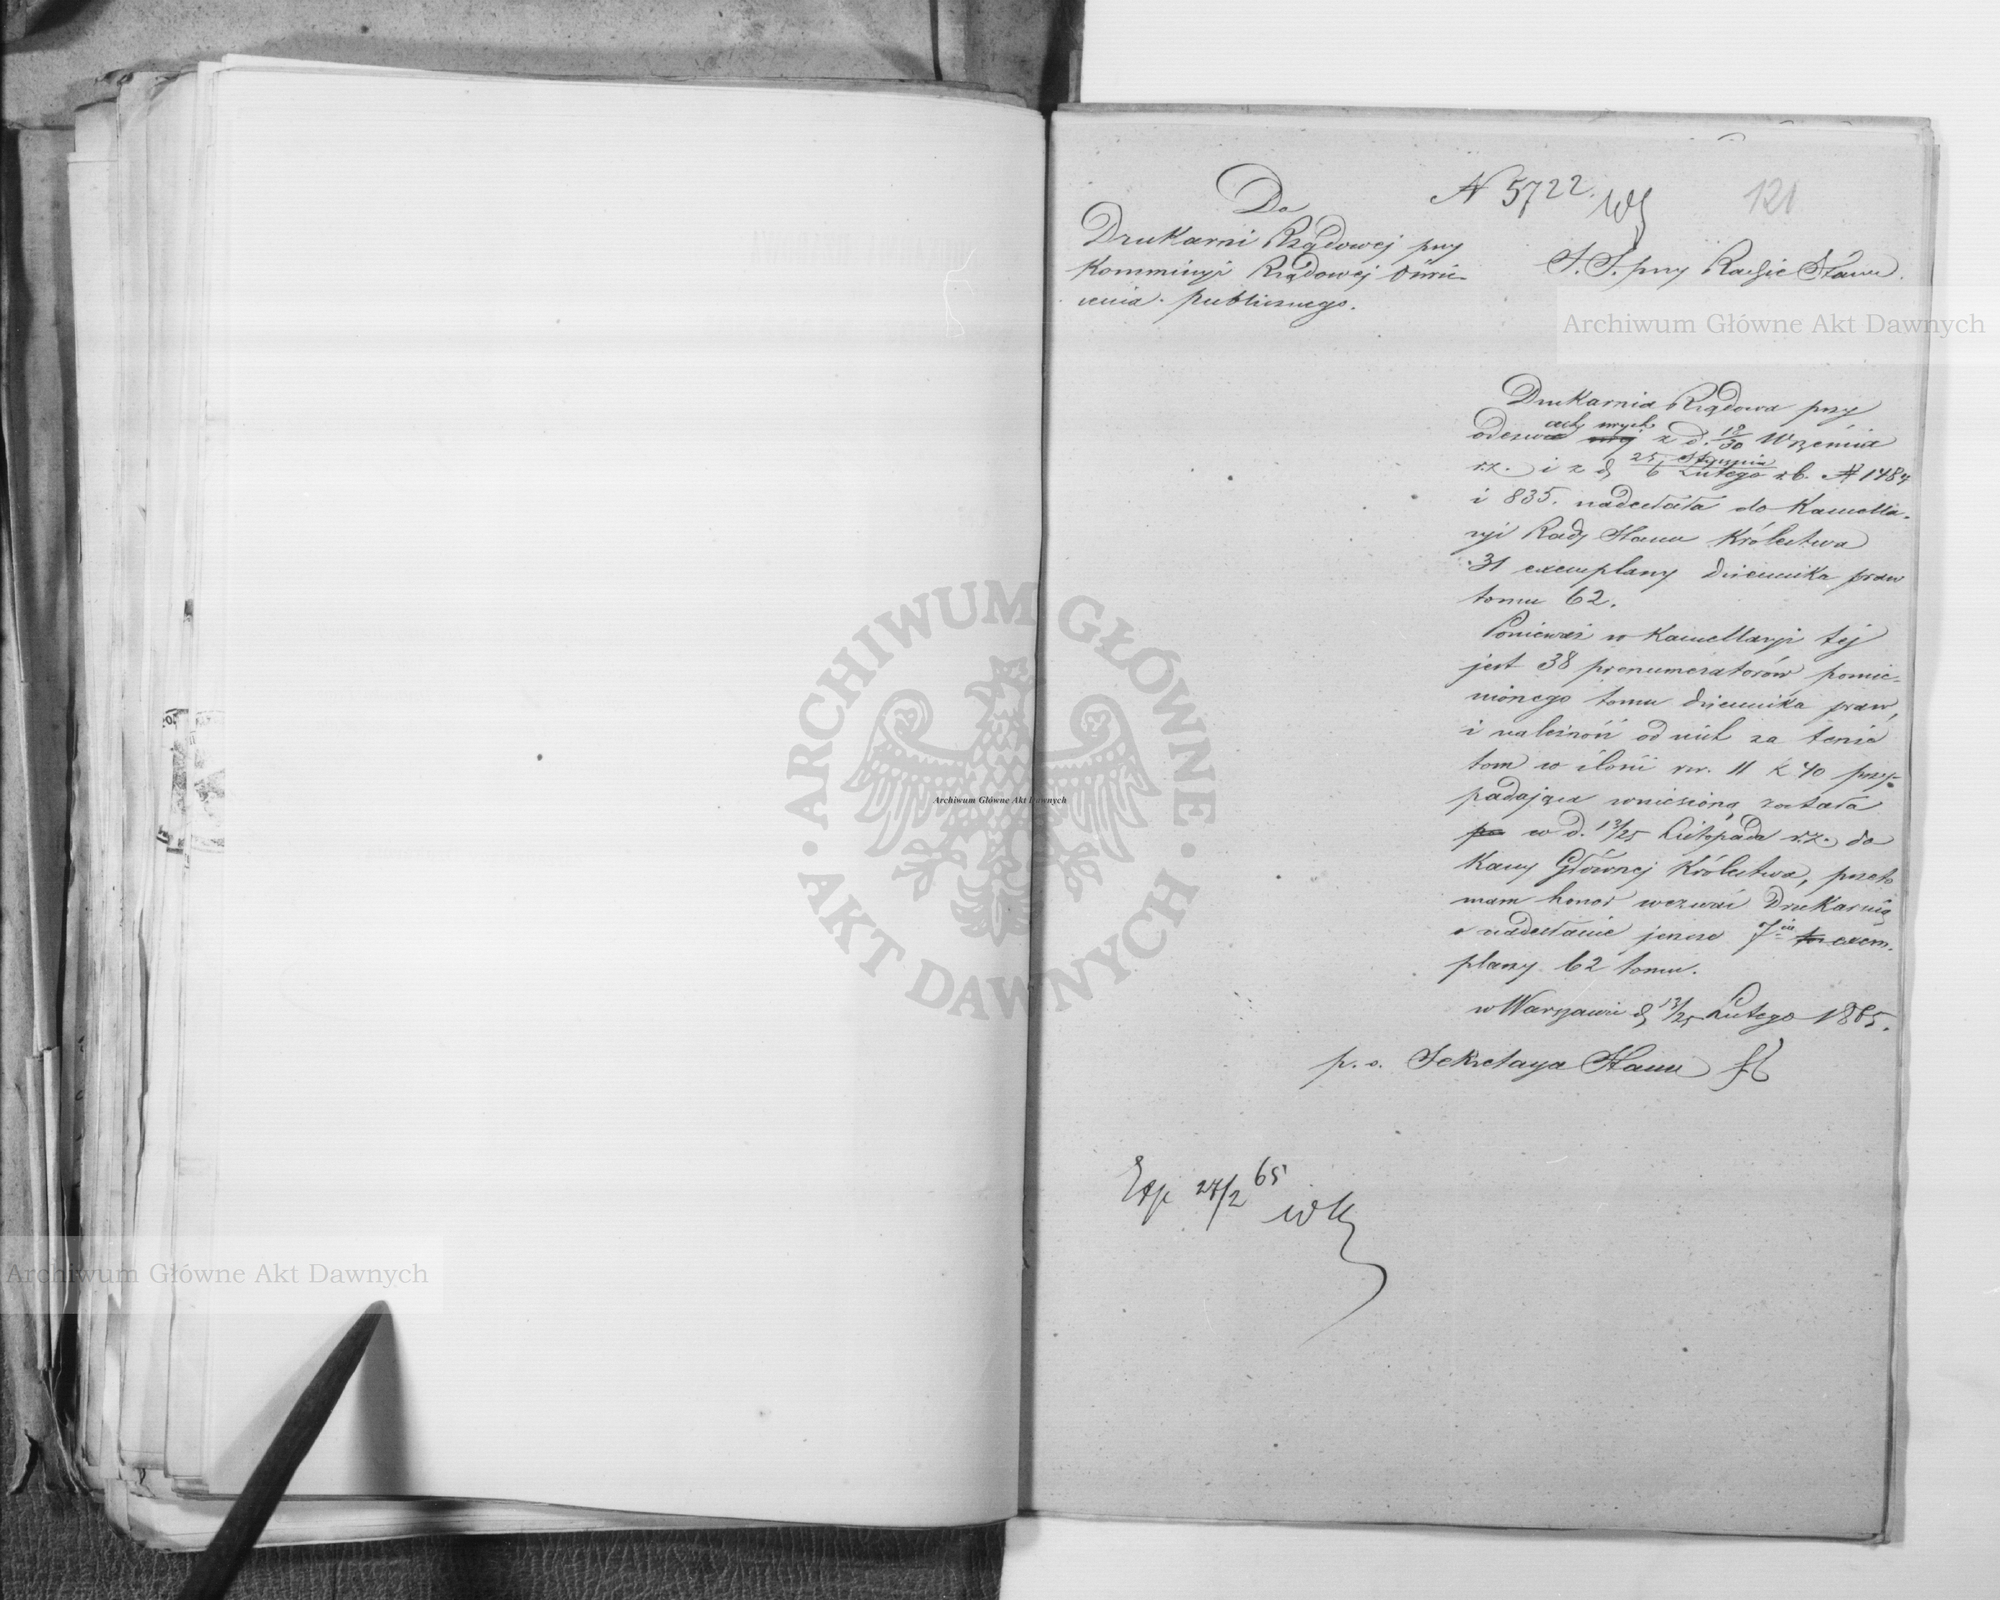 121
N 5722.
Do
Drukarni Rządowej przy
Kommissyi Rządowej Oświe-
cenia publicznego.
S. S. przy Radzie Stanu.
Drukarnia Rządowa przy
odezwach swych z d. 18/30 Września
r.z. i z d. 25 Stycznia / 6 Lutego r.b. N 1484
i 835. nadesłała do Kancella-
ryi Rady Stanu Królestwa
31 exemplarzy dziennika praw
tomu 62.
Ponieważ w Kancellaryi tej
jest 38 prenumeratorów pomie-
nionego tomu dziennika praw,
i należność od nich za tenże
tom w ilości rsr. 11 k 40 przy-
padająca wniesioną została
w d. 13/25 Listopada r.z. do
Kassy Głównej Królestwa, przeto
mam honor wezwać Drukarnię
o nadesłanie jeszcze 7iu exem-
plarzy 62 tomu.
w Warszawie d. 13/25 Lutego 1865.
p. o. Sekretarza Stanu
Exp 27/2 65
Archiwum Główne Akt Dawnych
Archiwum Główne Akt Dawnych
Archiwum Główne Akt Dawnych
ARCHIWUM GŁÓWNE · AKT DAWNYCH ·